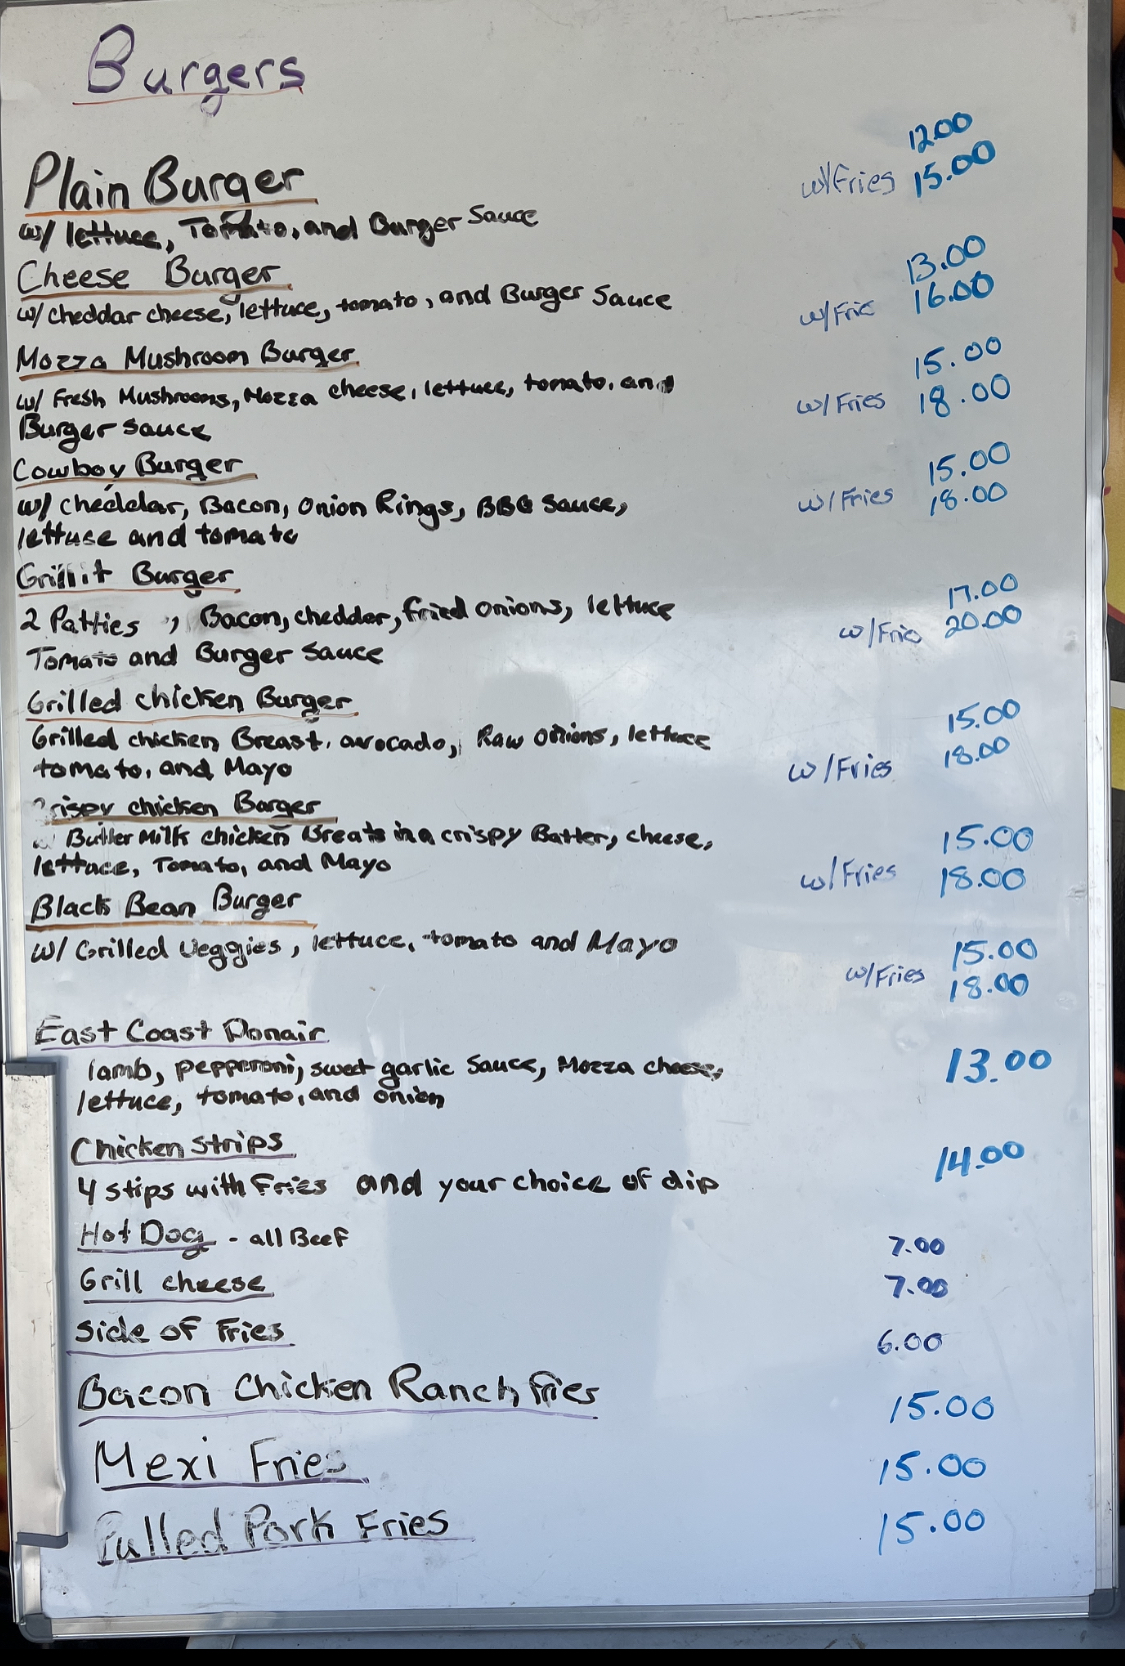 Burgers
12.00
Plain Burger w/Fries 15.00
w/ lettuce, Tomato, and Burger Sauce
Cheese Burger 13.00
w/ cheddar cheese, lettuce, tomato, and Burger Sauce w/Frie 16.00
Mozza Mushroom Burger 15.00
w/ Fresh Mushrooms, Mozza cheese, lettuce, tomato, and w/Fries 18.00
Burger sauce
Cowboy Burger 15.00
w/ cheddar, Bacon, Onion Rings, BBQ Sauce, w/Fries 18.00
lettuse and tomato
Grillit Burger 17.00
2 Patties, Bacon, cheddar, fried onions, lettuce w/Frie 20.00
Tomato and Burger Sauce
Grilled chicken Burger 15.00
Grilled chicken Breast, avocado, Raw onions, lettuce w/Fries 18.00
tomato, and Mayo
Crispy chicken Burger
w/ Butter Milk chicken Breats in a crispy Batter, cheese, 15.00
lettuce, Tomato, and Mayo w/Fries 18.00
Black Bean Burger
w/ Grilled Veggies, lettuce, tomato and Mayo 15.00
w/Fries 18.00
East Coast Donair
lamb, pepperoni, sweet garlic Sauce, Mozza cheese, 13.00
lettuce, tomato, and onion
Chicken Strips 14.00
4 stips with Fries and your choice of dip
Hot Dog - all Beef 7.00
Grill cheese 7.00
Side of Fries 6.00
Bacon Chicken Ranch fries 15.00
Mexi Fries 15.00
Pulled Pork Fries 15.00